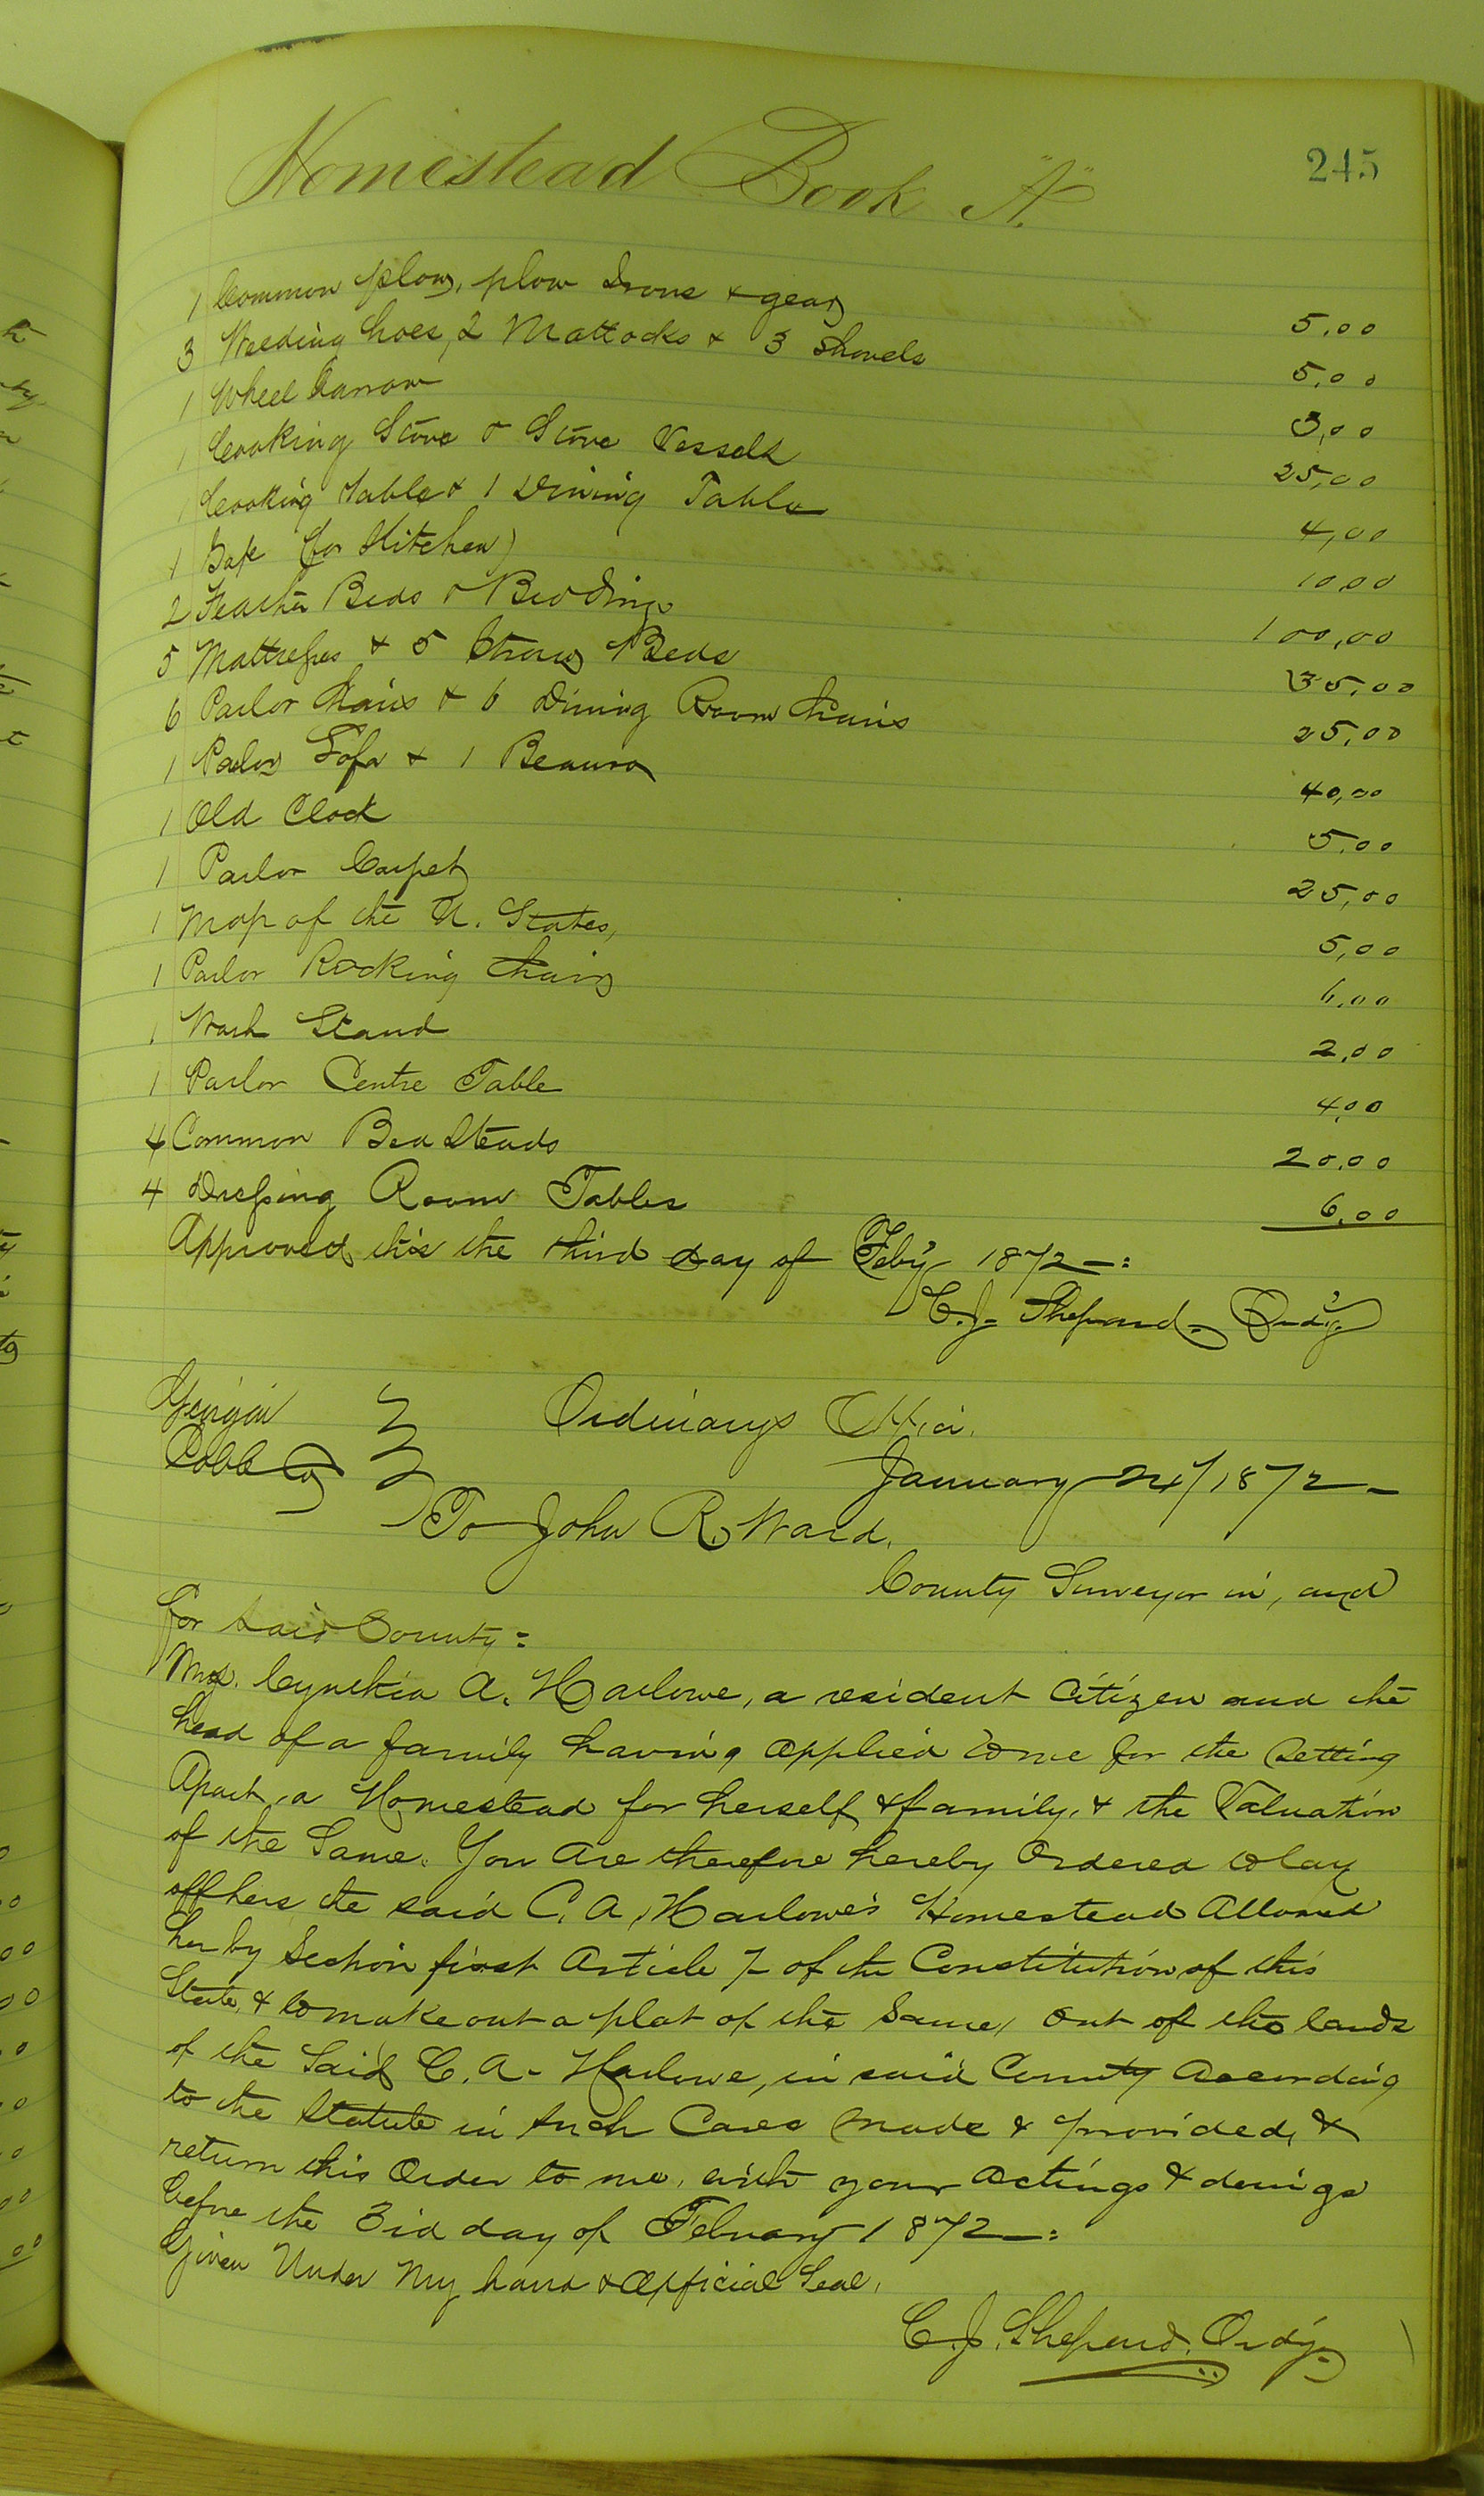 Homestead Book "A"
245
1 Common plow, plow Irons & gear 5.00
3 Weeding hoes, 2 Mattocks & 3 Shovels 5.00
1 Wheel barrow 3.00
1 Cooking Stove & Stove Vessels 25.00
1 Cooking table & 1 Dining Table 4.00
1 Safe (for Kitchen) 10.00
2 Feather Beds & Bedding 100.00
5 Mattresses & 5 Straw Beds 35.00
6 Parlor Chairs & 6 Dining Room Chairs 25.00
1 Parlor Sofa & 1 Beauro 40.00
1 Old Clock 5.00
1 Parlor Carpet 25.00
1 Map of the U. States, 5.00
1 Parlor Rocking Chair 6.00
1 Wash Stand 2.00
1 Parlor Centre Table 4.00
4 Common Bed Steads 20.00
4 Dressing Room Tables 6.00
Approved this the third day of Feb'y 1872—:
C. J. Shepard - Ord'y
Georgia } Ordinarys Office.
Cobb Co } January 24/1872—
To John R. Ward.
County Surveyor in, and
for said County =
Mrs. Cynthia A. Harlowe, a resident Citizen and the
head of a family having applied to me for the Setting
Apart, a Homestead for herself & family, & the Valuation
of the Same. You Are therefore hereby Ordered to lay
off hers, the said C. A. Harlowe's Homestead Allowed
her by Section first Article 7 of the Constitution of this
State, & to make out a plat of the Same, out of the lands
of the Said C. A. Harlowe, in said County According
to the Statute in Such Cases made & provided, &
return this Order to me, with your Actings & doings
before the 3rd day of February 1872—:
Given Under My hand & Official Seal,
C. J. Shepard, Ord'y